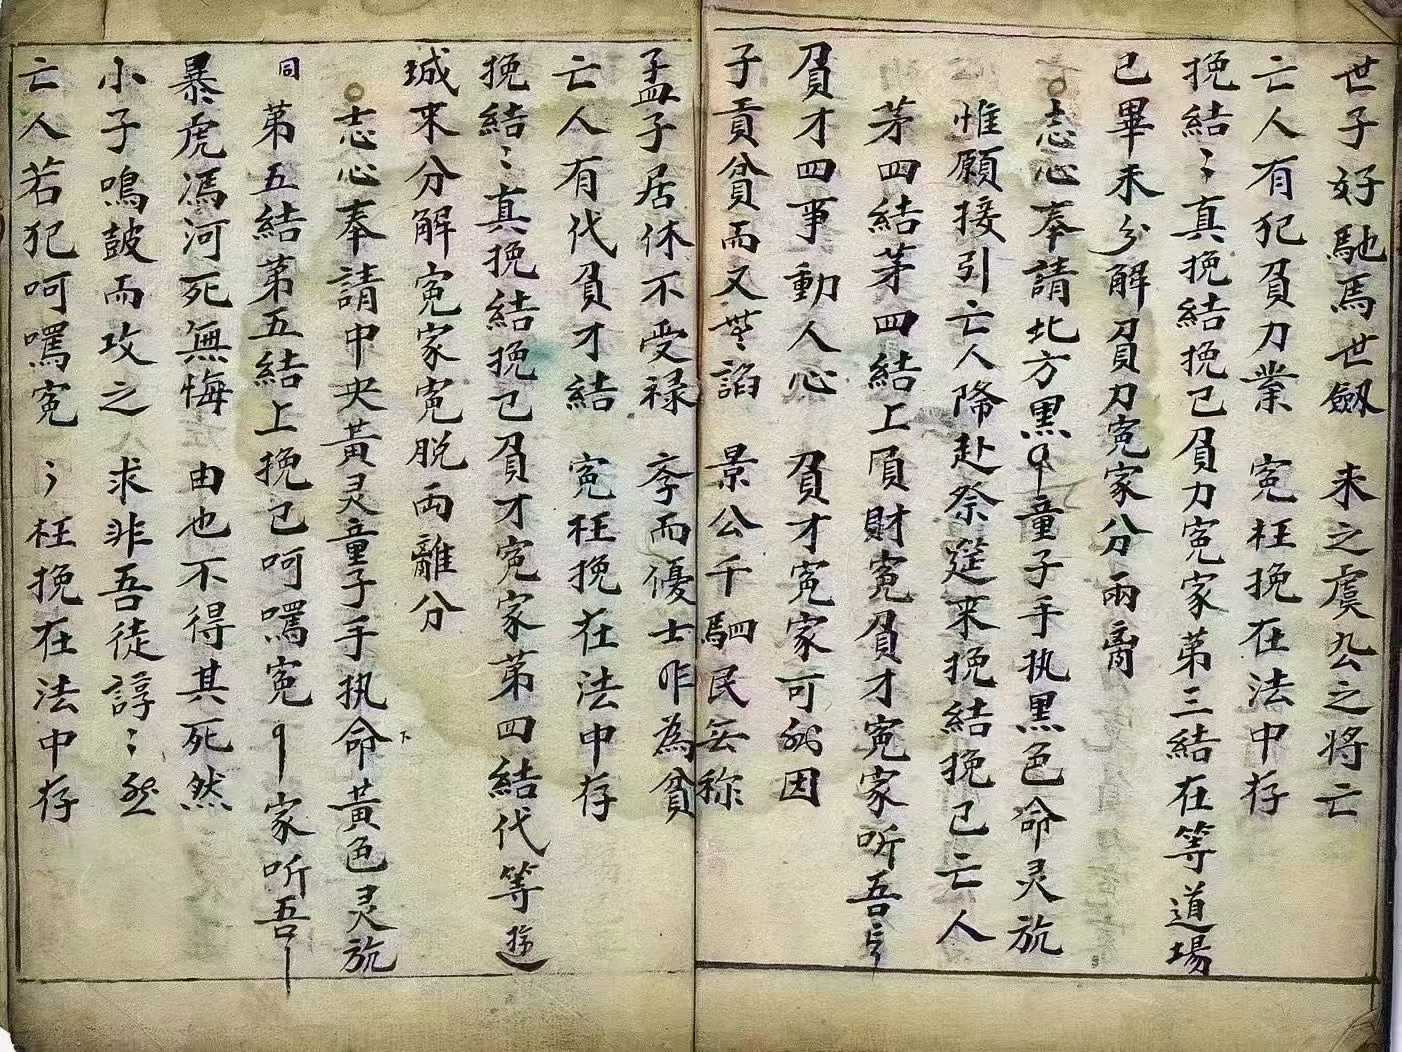 世子好馳馬世劔　未之虞公之将亡
亡人有犯負刀業　冤枉挽在法中存
挽結〻真挽結挽已負力冤家第三結在等道場
已畢未分解負刀冤家分兩
志心奉請北方黑童子手执黑色命灵旐
惟願接引亡人降赴祭筵来挽結挽已亡人
茅四結茅四結上負財冤負才冤家听吾
負才四事動人心　負才冤家可因
子貢貧而又無諂　景公千駟民無称
孟子居休不受禄　李而優士非為貧
亡人有代負才結　冤枉挽在法中存
挽結〻真挽結挽已負才冤家第四結代等
城来分解冤家冤脱両離分
志心奉請中央黃灵童子手执命黃色灵旐
同 第五結第五結上挽已呵罵冤家听吾
暴虎馮河死無悔　由也不得其死然
小子鳴鼓而攻之　求非吾徒諄〻
亡人若犯呵罵冤　〻枉挽在法中存
下